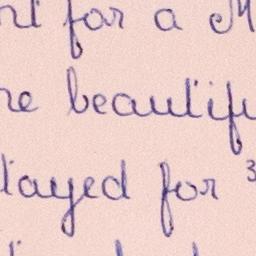 for a M
beautifu
tayed for 3